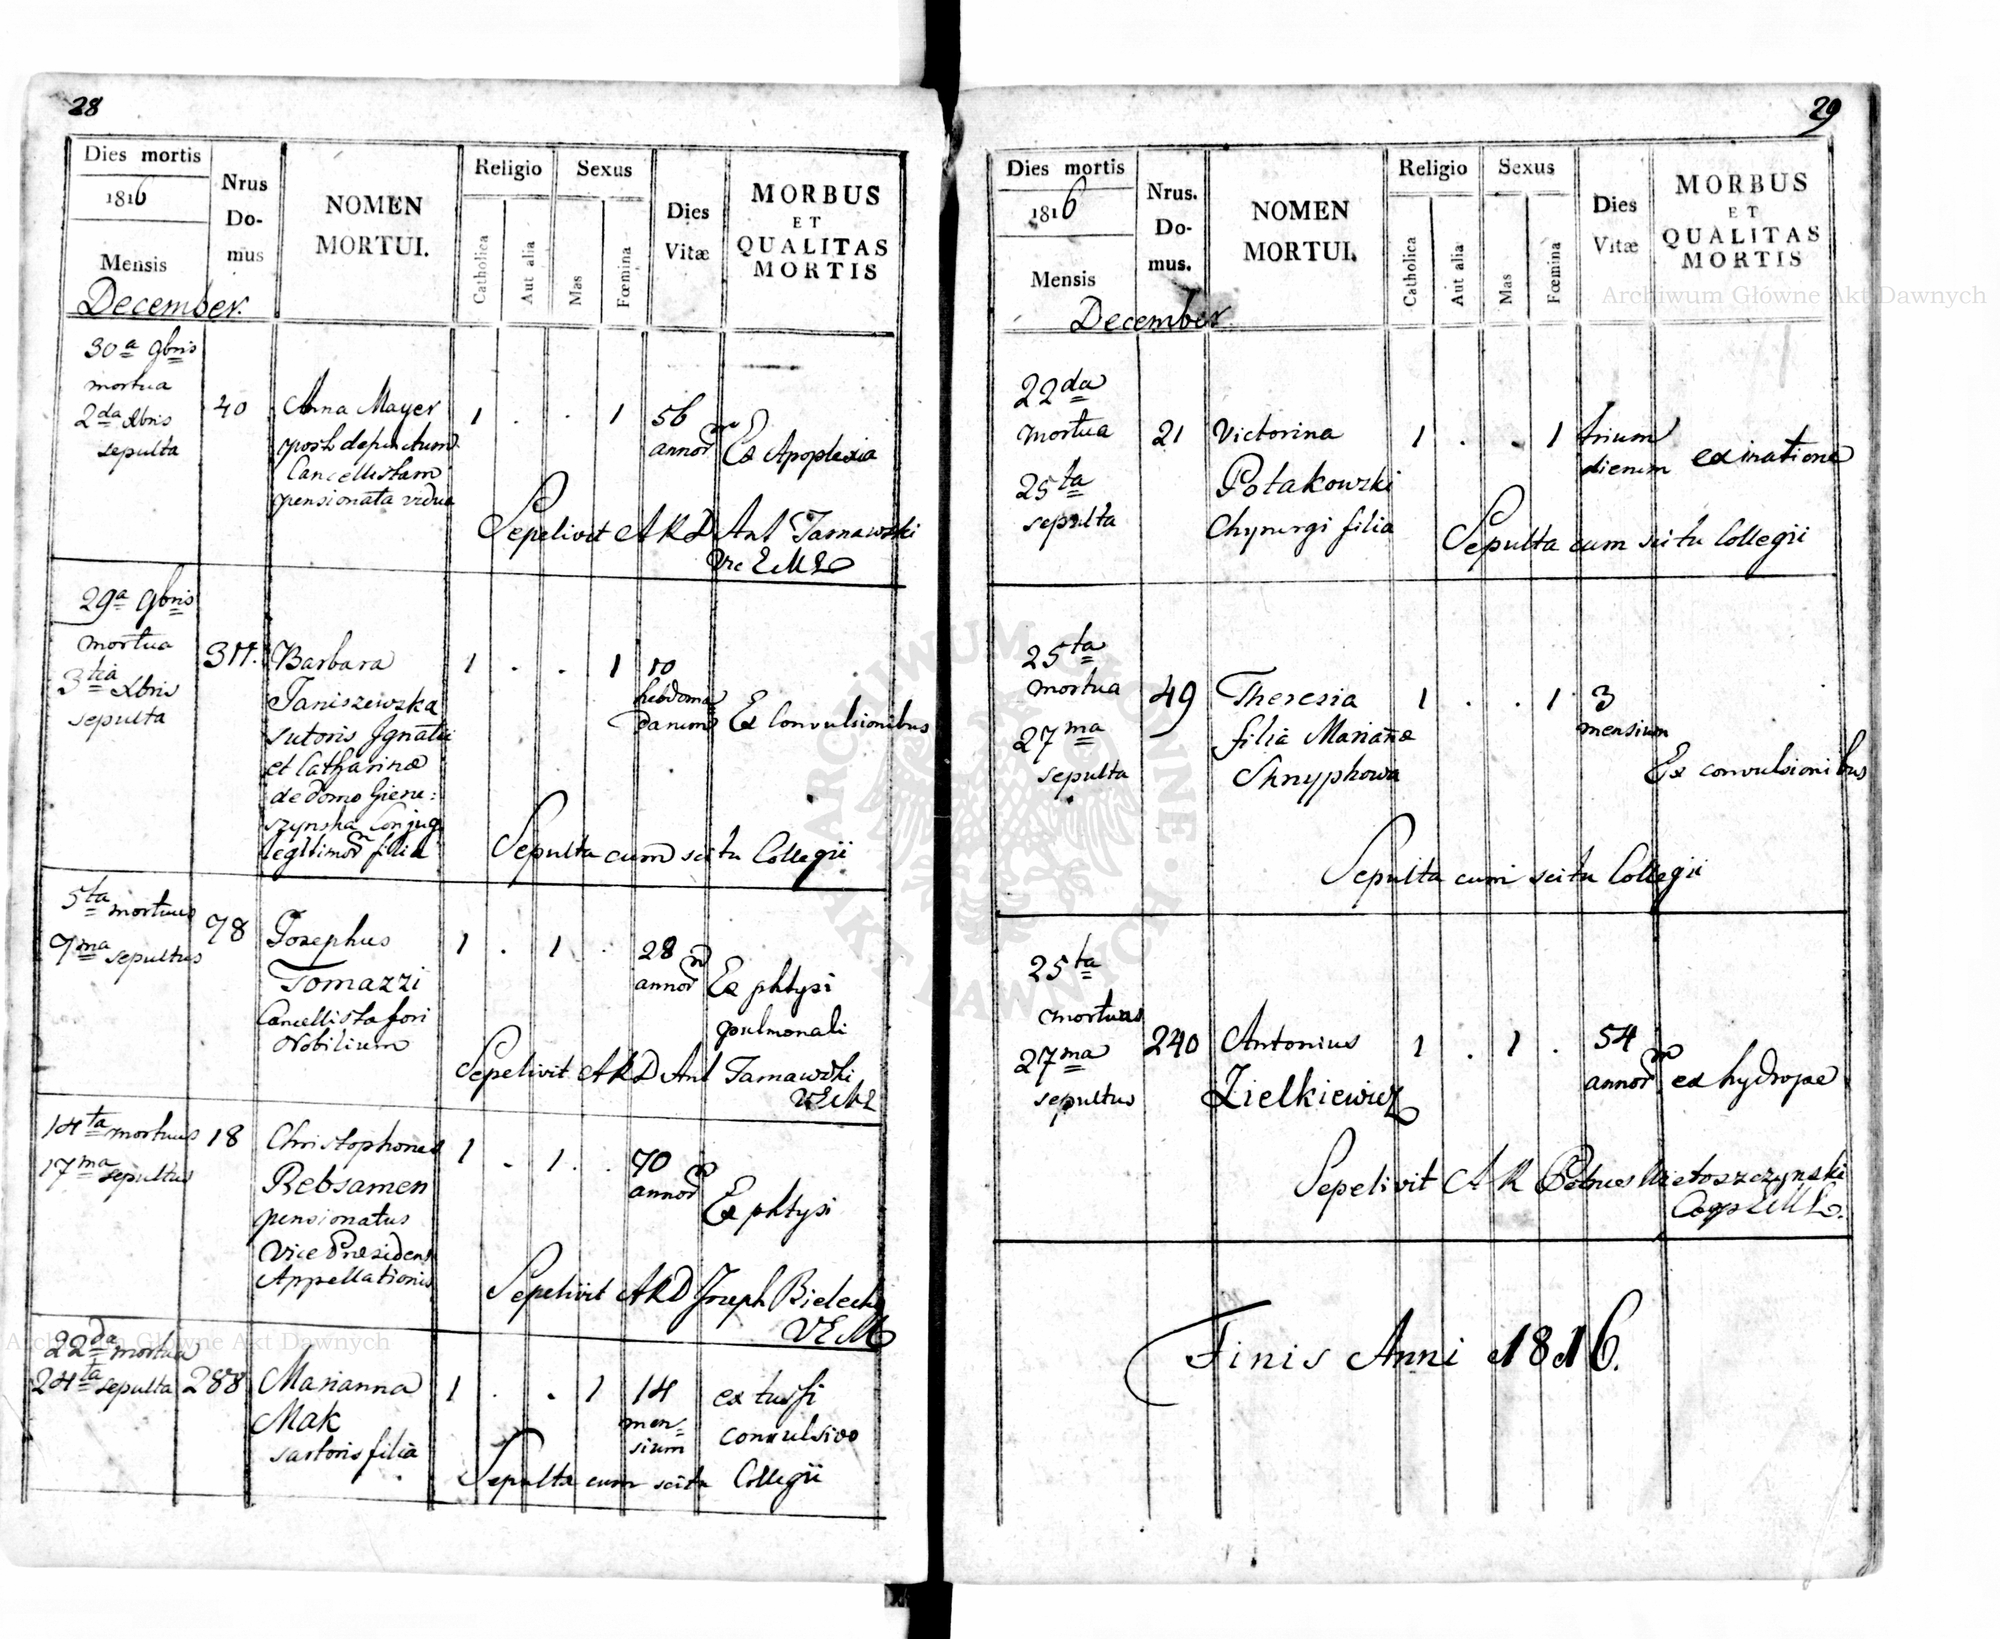 28
Dies mortis
1816
Mensis
December.
Nrus
Do-
mus
NOMEN
MORTUI.
Religio
Catholica
Aut alia
Sexus
Mas
Fœmina
Dies
Vitæ
MORBUS
ET
QUALITAS
MORTIS
30a 9bris
mortua
2da Xbris
sepulta
40
Anna Mayer
post defunctum
Cancellistam
pensionata vidua
1 . . 1
56
annor
Ex Apoplexia
Sepelivit ARD Ant Tarnawski
29a 9bris
mortua
3tia Xbris
sepulta
311.
Barbara
Janiszewska
sutoris Ignatii
et Catharinæ
de domo Giene:
szynska Conjug
legitimor filia
1 . . 1
10
hebdoma
danum
Ex Convulsionibus
Sepulta cum scitu Collegii
5ta mortuus
7ma sepultus
78
Josephus
Tomazzi
Cancellista fori
Nobilium
1 . 1 .
28
annor
Ex phtysi
pulmonali
Sepelivit ARD Ant Tarnawski
14ta mortuus
17ma sepultus
18
Christophorus
Rebsamen
pensionatus
Vice Præsidens
Appellationis
1 . 1 .
70
annor
Ex phtysi
Sepelivit ARD Joseph Bielecki
VEM
22da mortua
24ta sepulta
288
Marianna
Mak
sartoris filia
1 . . 1
14
men=
sium
ex tussi
convulsivo
Sepulta cum scitu Collegii
29
Dies mortis
1816
Mensis
December
Nrus.
Do-
mus.
NOMEN
MORTUI.
Religio
Catholica
Aut alia
Sexus
Mas
Fœmina
Dies
Vitæ
MORBUS
ET
QUALITAS
MORTIS
22da
mortua
25ta
sepulta
21
Victorina
Potakowski
Chyrurgi filia
1 . . 1
trium
dierum
Sepulta cum scitu Collegii
25ta
mortua
27ma
sepulta
49
Theresia
filia Mariañæ
1 . . 1
3
mensium
Ex convulsionibus
Sepulta cum scitu Collegii
25ta
mortuus
27ma
sepultus
240
Antonius
Zielkiewicz
1 . 1 .
54
annor
ex hydrope
Sepelivit AR Petrus
Finis Anni 1816.
Archiwum Główne Akt Dawnych
Archiwum Główne Akt Dawnych
ARCHIWUM GŁÓWNE AKT DAWNYCH